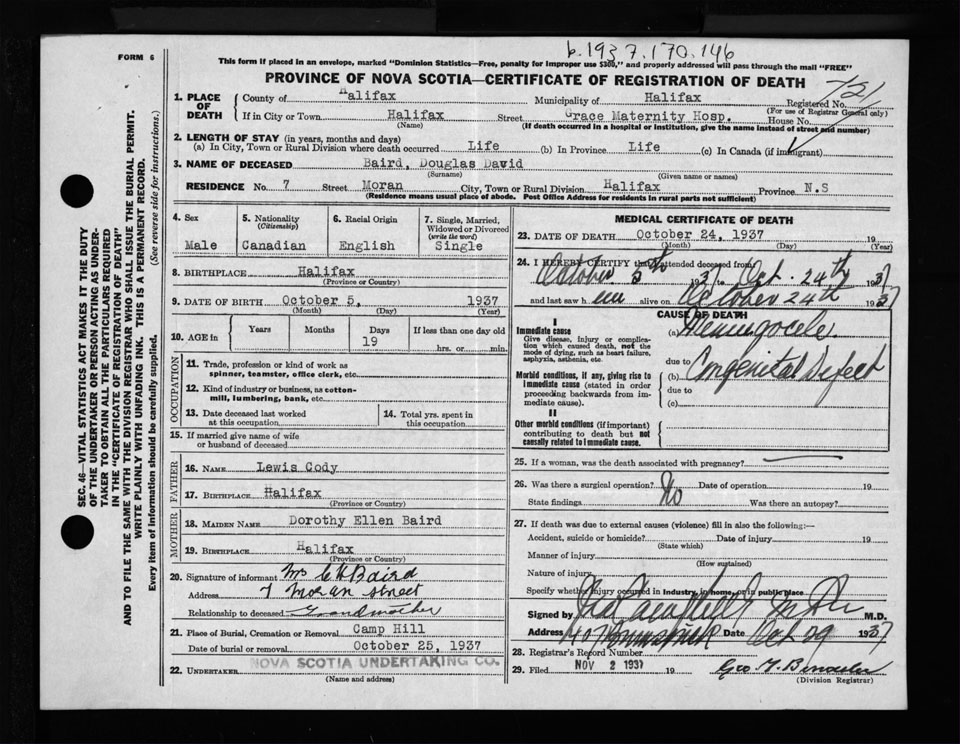 b.1937.170.146
FORM 6
This form if placed in an envelope, marked "Dominion Statistics—Free, penalty for improper use $300," and properly addressed will pass through the mail "FREE"
PROVINCE OF NOVA SCOTIA—CERTIFICATE OF REGISTRATION OF DEATH
SEC. 46—VITAL STATISTICS ACT MAKES IT THE DUTY
OF THE UNDERTAKER OR PERSON ACTING AS UNDER-
TAKER TO OBTAIN ALL THE PARTICULARS REQUIRED
IN THE "CERTIFICATE OF REGISTRATION OF DEATH"
AND TO FILE THE SAME WITH THE DIVISION REGISTRAR WHO SHALL ISSUE THE BURIAL PERMIT.
WRITE PLAINLY WITH UNFADING INK. THIS IS A PERMANENT RECORD.
Every item of information should be carefully supplied. (See reverse side for instructions.)
1. PLACE OF DEATH County of Halifax Municipality of Halifax Registered No. 721
(For use of Registrar General only)
If in City or Town Halifax Street Grace Maternity Hosp. House No.
(Name) (If death occurred in a hospital or institution, give the name instead of street and number)
2. LENGTH OF STAY (in years, months and days)
(a) In City, Town or Rural Division where death occurred Life (b) In Province Life (c) In Canada (if immigrant)
3. NAME OF DECEASED Baird, Douglas David
(Surname) (Given name or names)
RESIDENCE No. 7 Street Moran City, Town or Rural Division Halifax Province N.S
(Residence means usual place of abode. Post Office Address for residents in rural parts not sufficient)
4. Sex
Male
5. Nationality
(Citizenship)
Canadian
6. Racial Origin
English
7. Single, Married,
Widowed or Divorced
(write the word)
Single
8. BIRTHPLACE Halifax
(Province or Country)
9. DATE OF BIRTH October 5, 1937
(Month) (Day) (Year)
10. AGE in Years Months Days If less than one day old
19 hrs. or min.
OCCUPATION
11. Trade, profession or kind of work as
spinner, teamster, office clerk, etc.
12. Kind of industry or business, as cotton-
mill, lumbering, bank, etc.
13. Date deceased last worked
at this occupation
14. Total yrs. spent in
this occupation
15. If married give name of wife
or husband of deceased
FATHER
16. NAME Lewis Cody
17. BIRTHPLACE Halifax
(Province or Country)
MOTHER
18. MAIDEN NAME Dorothy Ellen Baird
19. BIRTHPLACE Halifax
(Province or Country)
20. Signature of informant Mrs Baird
Address 7 Moran Street
Relationship to deceased Grandmother
21. Place of Burial, Cremation or Removal Camp Hill
Date of burial or removal October 25, 1937
22. UNDERTAKER NOVA SCOTIA UNDERTAKING CO.
(Name and address)
MEDICAL CERTIFICATE OF DEATH
23. DATE OF DEATH October 24, 1937 19
(Month) (Day) (Year)
24. I HEREBY CERTIFY that I attended deceased from
October 5th 1937 to Oct. 24th 1937
and last saw him alive on October 24th 1937
CAUSE OF DEATH
I
Immediate cause
Give disease, injury or complica-
tion which caused death, not the
mode of dying, such as heart failure,
asphyxia, asthenia, etc.
(a) Meningocele
due to
Morbid conditions, if any, giving rise to
immediate cause (stated in order
proceeding backwards from im-
mediate cause).
(b) Congenital Defect
due to
(c)
II
Other morbid conditions (if important)
contributing to death but not
causally related to immediate cause.
25. If a woman, was the death associated with pregnancy?
26. Was there a surgical operation? No Date of operation 19
State findings Was there an autopsy?
27. If death was due to external causes (violence) fill in also the following:—
Accident, suicide or homicide? Date of injury 19
(State which)
Manner of injury
(How sustained)
Nature of injury
Specify whether injury occurred in industry, in home, or in public place
Signed by M.D.
Address Date Oct 29 1937
28. Registrar's Record Number
29. Filed NOV 2 1937 19
(Division Registrar)